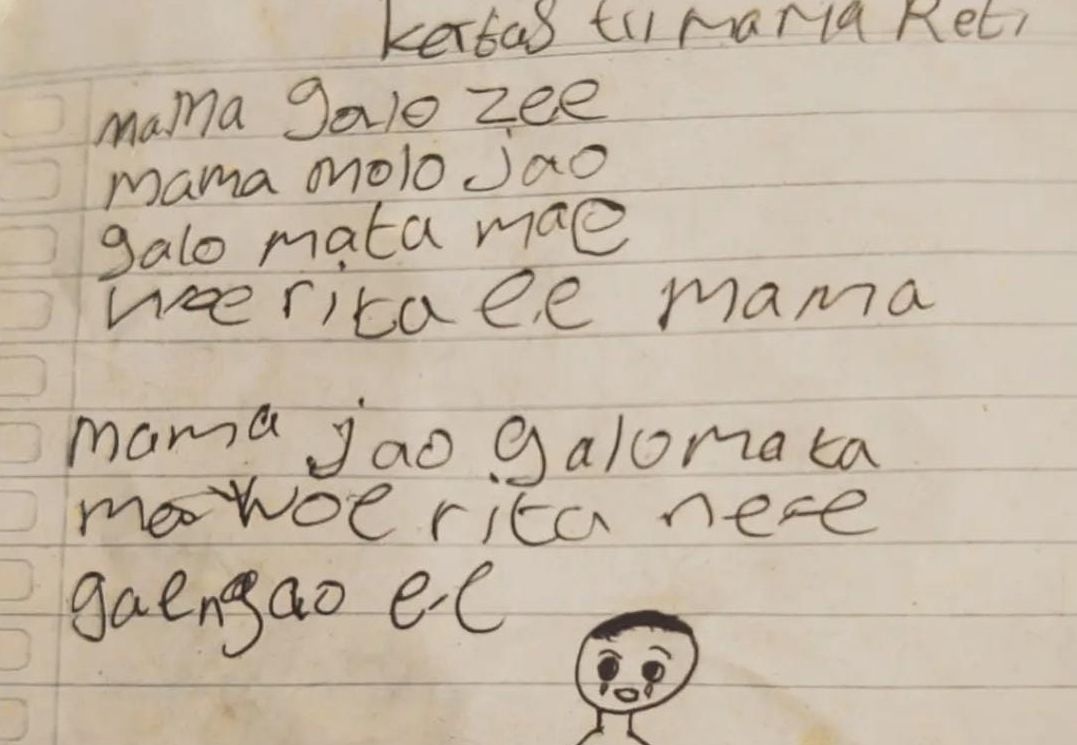 kertas tii mama Reti
mama galo zee
mama molo jao
galo mata mae
woe rita ee mama
mama jao galo mata
mae woe rita nee
gae ngao ee